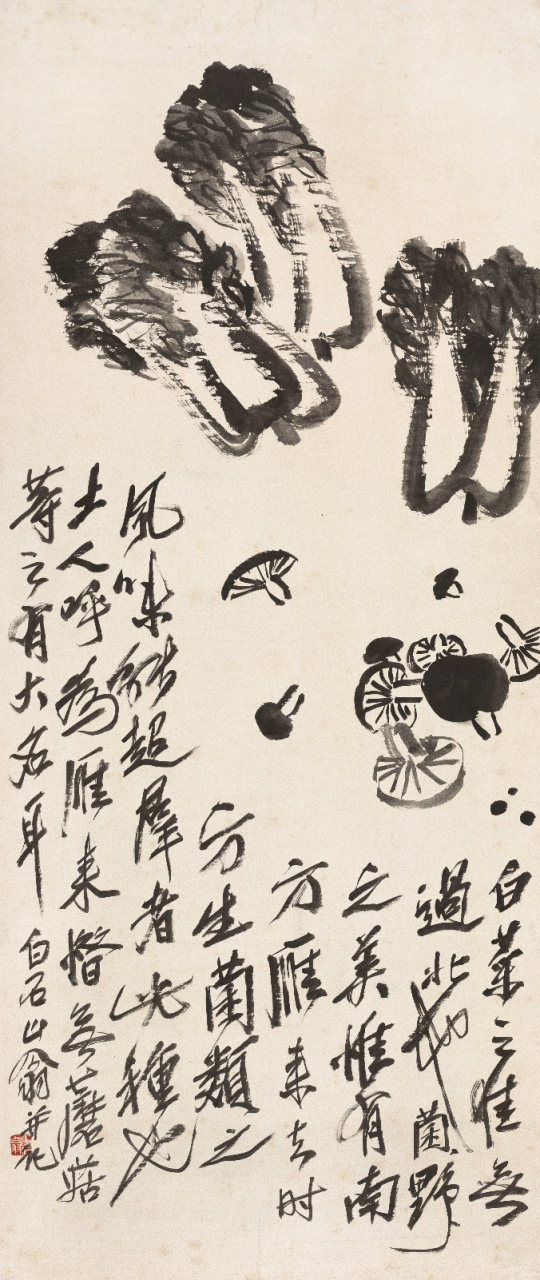 白菜之佳無
過北地菌野
之美惟有南
方雁来去时
方生菌類之
風味能超羣者此種也
土人呼為雁来惜無蘑菇
等之有大名耳 白石山翁并記